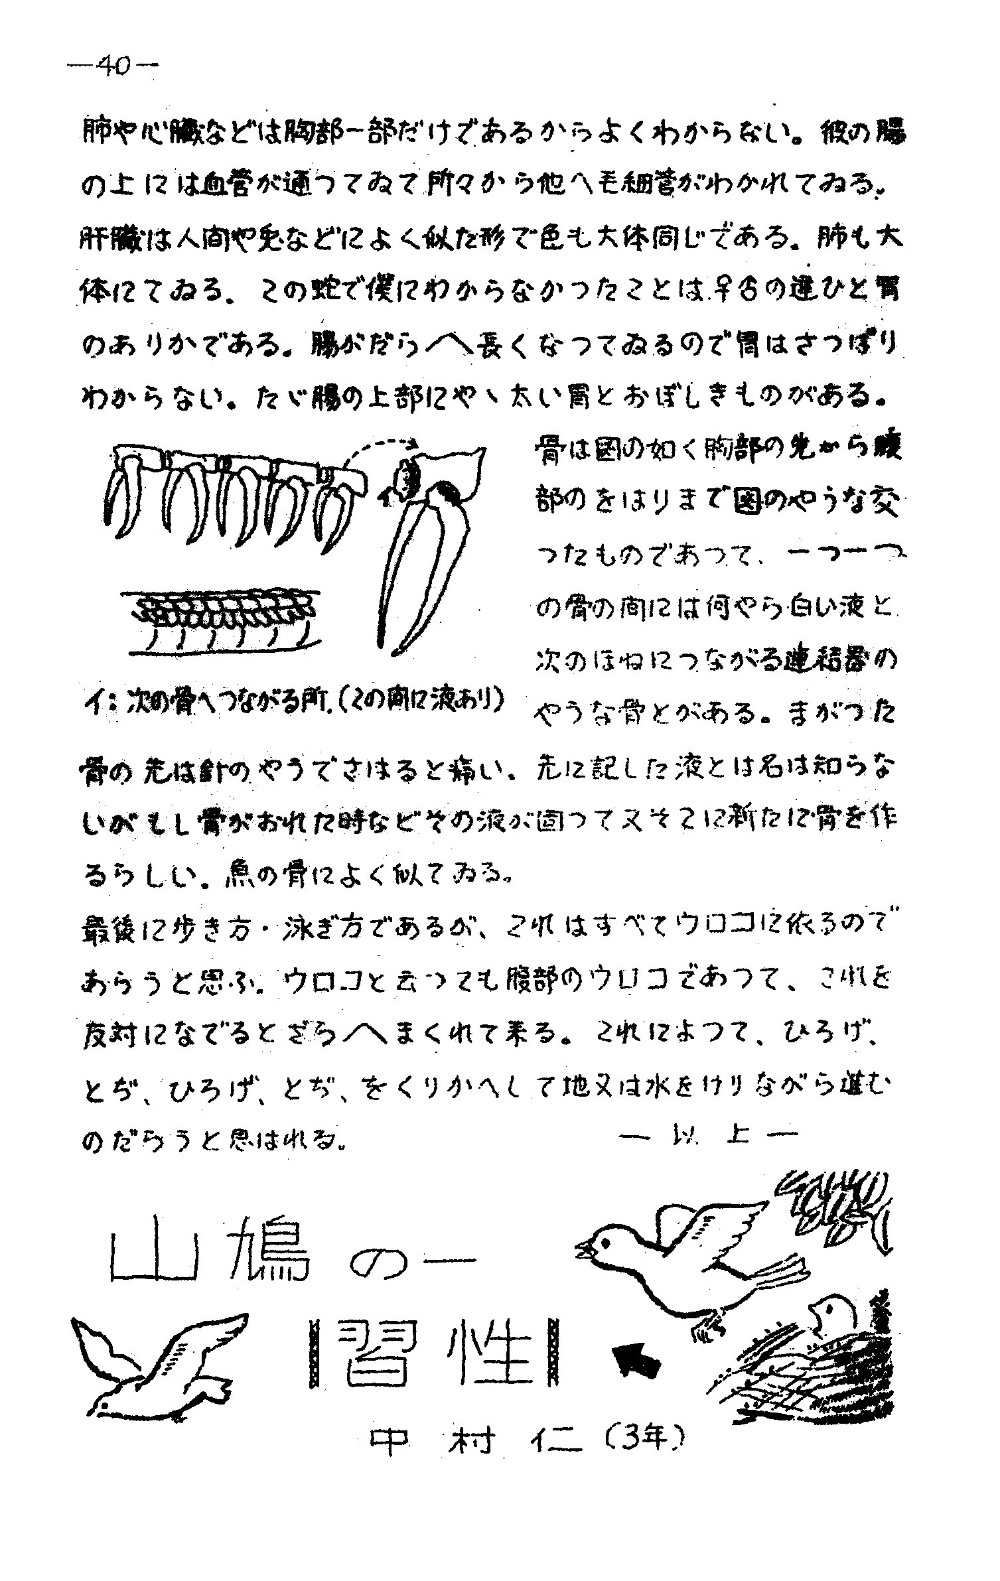 —40—
肺や心臓などは胸部一部だけであるからよくわからない。彼の腸
の上には血管が通つてゐて所々から他へ毛細管がわかれてゐる。
肝臓は人間や兎などによく似た形で色も大体同じである。肺も大
体にてゐる。この蛇で僕にわからなかつたことは、早舌の運ひと胃
のありかである。腸がだら〱長くなつてゐるので胃はさつぱり
わからない。たゞ腸の上部にやゝ太い胃とおぼしきものがある。
骨は図の如く胸部の先から腹
部のをはりまで図のやうな交
つたものであつて、一つ一つ
の骨の間には何やら白い液と
次のほねにつながる連結器の
やうな骨とがある。まがつた
イ：次の骨へつながる所.（この間に液あり）
骨の先は針のやうでさはると痛い。先に記した液とは名は知らな
いがもし骨がおれた時などその液が固つて又そこに新たに骨を作
るらしい。魚の骨によく似てゐる。
最後に歩き方・泳ぎ方であるが、これはすべてウロコに依るので
あらうと思ふ。ウロコと云つても腹部のウロコであつて、これを
反対になでるとざら〱まくれて来る。これによつて、ひろげ、
とぢ、ひろげ、とぢ、をくりかへして地又は水をけりながら進む
のだらうと思はれる。
— 以上 —
山鳩の一
習性
中村仁（3年）